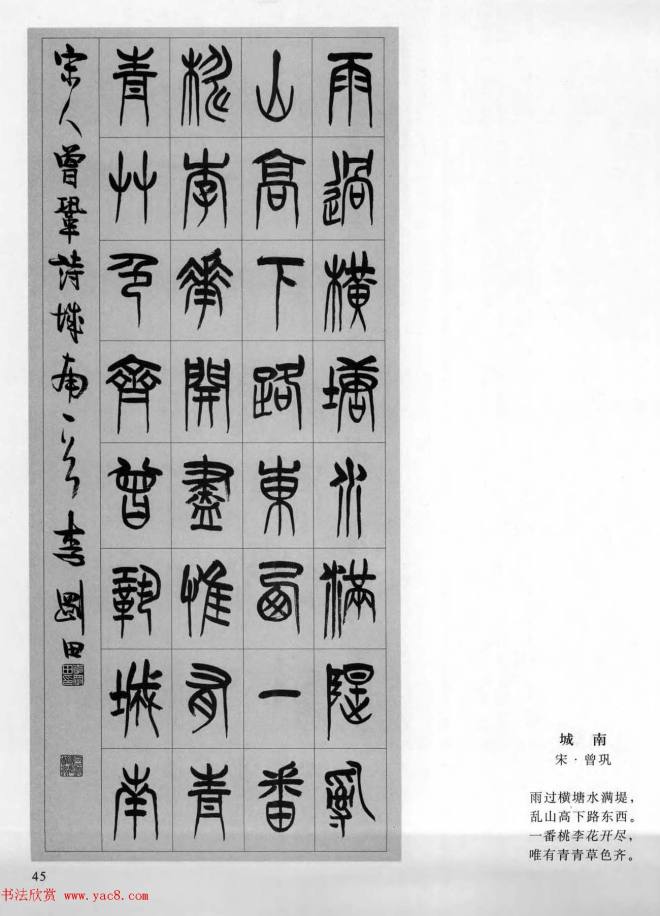 雨過橫塘水滿隄亂
山高下路東西一番
桃李華開盡惟有青
青艸色齊曾鞏城南
宋人曾鞏詩城南一首 李剛田
城 南
宋·曾巩
雨过横塘水满堤，
乱山高下路东西。
一番桃李花开尽，
唯有青青草色齐。
45
书法欣赏 www.yac8.com